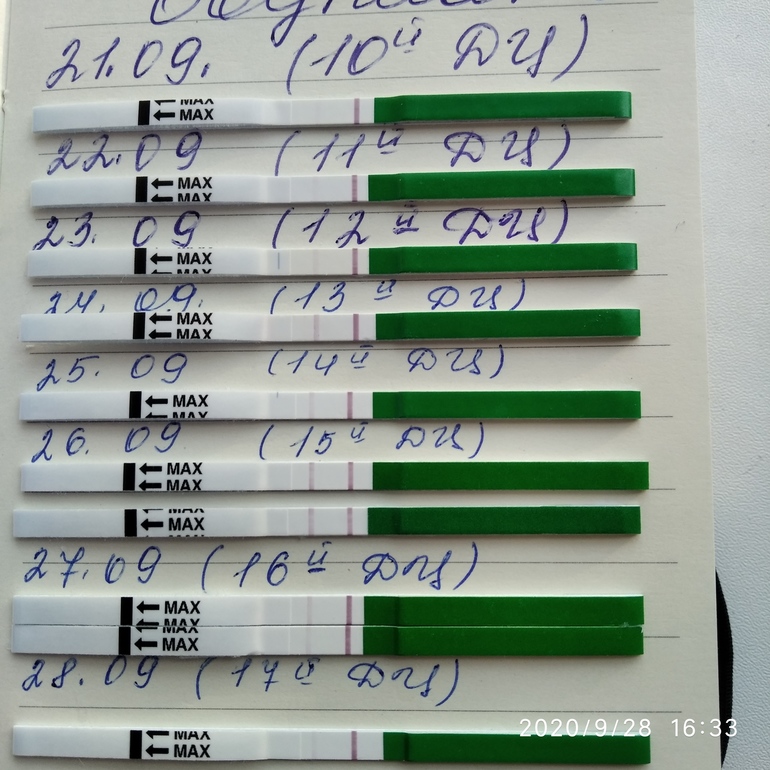 21.09. (10й ДЦ)
MAX
MAX
22.09 (11й ДЦ)
MAX
MAX
23. 09 (12й ДЦ)
MAX
MAX
24. 09. (13й ДЦ)
MAX
MAX
25. 09 (14й ДЦ)
MAX
MAX
26. 09 (15й ДЦ)
MAX
MAX
MAX
MAX
MAX
27.09 (16й ДЦ)
MAX
MAX
MAX
28.09 (17й ДЦ)
2020/9/28 16:33
MAX
MAX